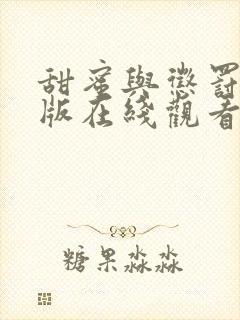 甜蜜與懲罰
版在綫觀看
糖果淼淼